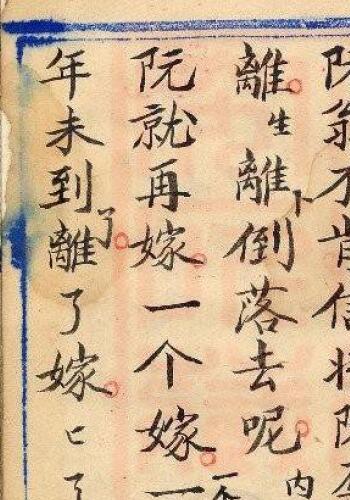 翁不肯信
離生離卜倒落去呢内
阮就再嫁一个嫁一个
年未到離了了嫁匕了